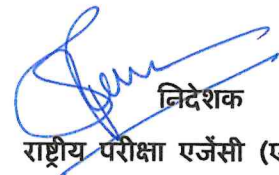 निदेशक
राष्ट्रीय परीक्षा एजेंसी (ए